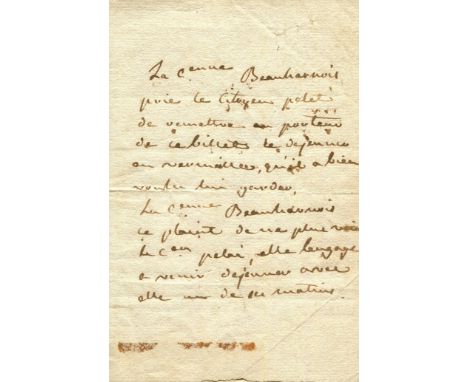 La Cenne Beauharnois
prie le Citoyen pelet
de remettre au porteur
de ce billet le dejeuner
en vermeille, qu'il a bien
voulu lui garder,
La Cenne Beauharnois
ce plaint de ne plus voir
le Cen pelai, elle l'engage
a venir dejeuner avec
elle un de ses matins.